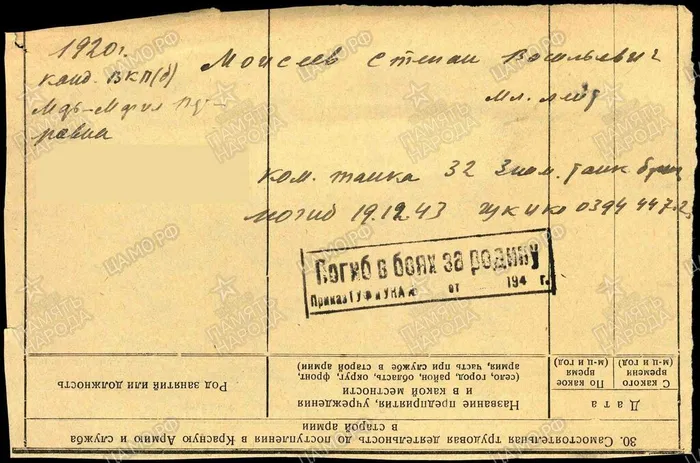 1920г.
Моисеев Степан Васильевич
канд. ВКП(б)
Мл. лейт
ком. танка 32
танк бриг
погиб 19.12.43
Погиб в боях за родину
Приказ ГУФ и УКА № от 194 г.
30. Самостоятельная трудовая деятельность до поступления в Красную Армию и служба
в старой армии
Дата
С какого времени (м-ц и год)
По какое время (м-ц и год)
Название предприятия, учреждения
и в какой местности
(село, город, район, область, округ, фронт,
армия, часть при службе в старой армии)
Род занятий или должность
ЦАМО.РФ
ПАМЯТЬ НАРОДА